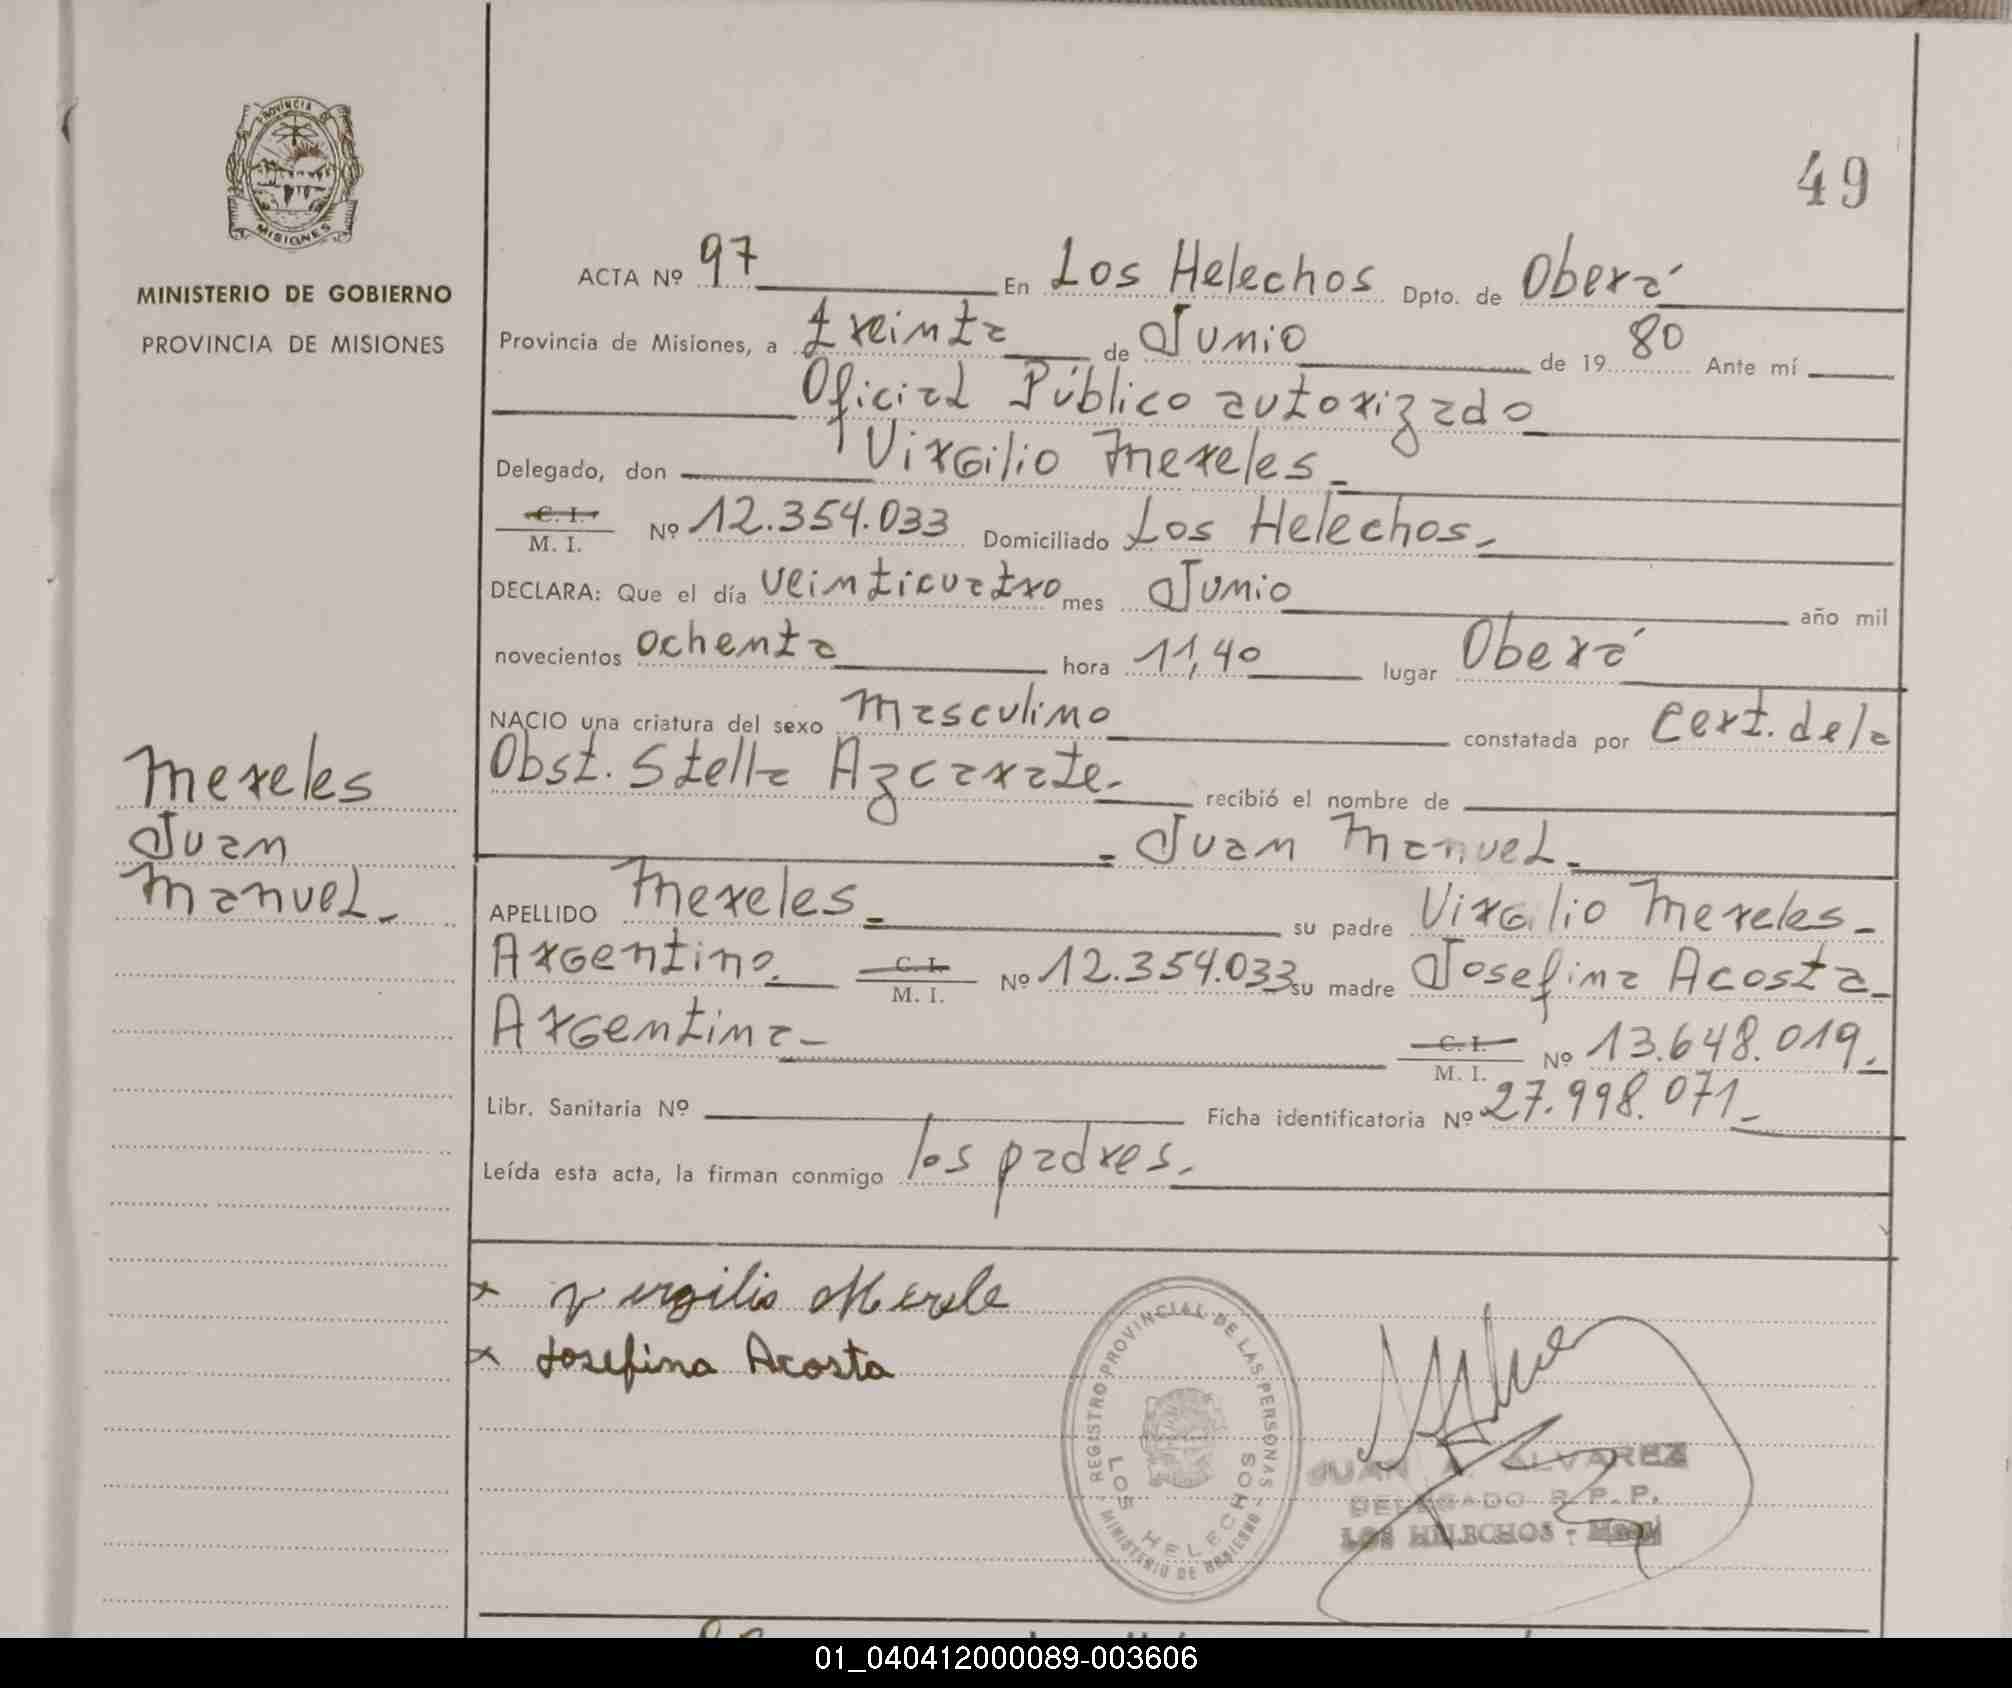 PROVINCIA DE
MISIONES
MINISTERIO DE GOBIERNO
PROVINCIA DE MISIONES
49
ACTA Nº 97 En Los Helechos Dpto. de Oberá
Provincia de Misiones, a treinta de Junio de 1980 Ante mí
Oficial Público autorizado
Delegado, don Virgilio Mereles
C. I. / M. I. Nº 12.354.033 Domiciliado Los Helechos.
DECLARA: Que el día veinticuatro mes Junio año mil
novecientos ochenta hora 11,40 lugar Oberá
NACIO una criatura del sexo masculino constatada por Cert. de la
Obst. Stella Azcarate. recibió el nombre de
= Juan Manuel.=
Mereles
Juan
Manuel.-
APELLIDO Mereles = su padre Virgilio Mereles -
Argentino. C. I. / M. I. Nº 12.354.033 su madre Josefina Acosta
Argentina - C. I. / M. I. Nº 13.648.019.
Libr. Sanitaria Nº Ficha identificatoria Nº 27.998.071 -
Leída esta acta, la firman conmigo los padres.
x Virgilio Merele
x Josefina Acosta
REGISTRO PROVINCIAL DE LAS PERSONAS
LOS HELECHOS
MINISTERIO DE GOBIERNO
JUAN A. ALVAREZ
DELEGADO R. P. P.
LOS HELECHOS -
01_040412000089-003606